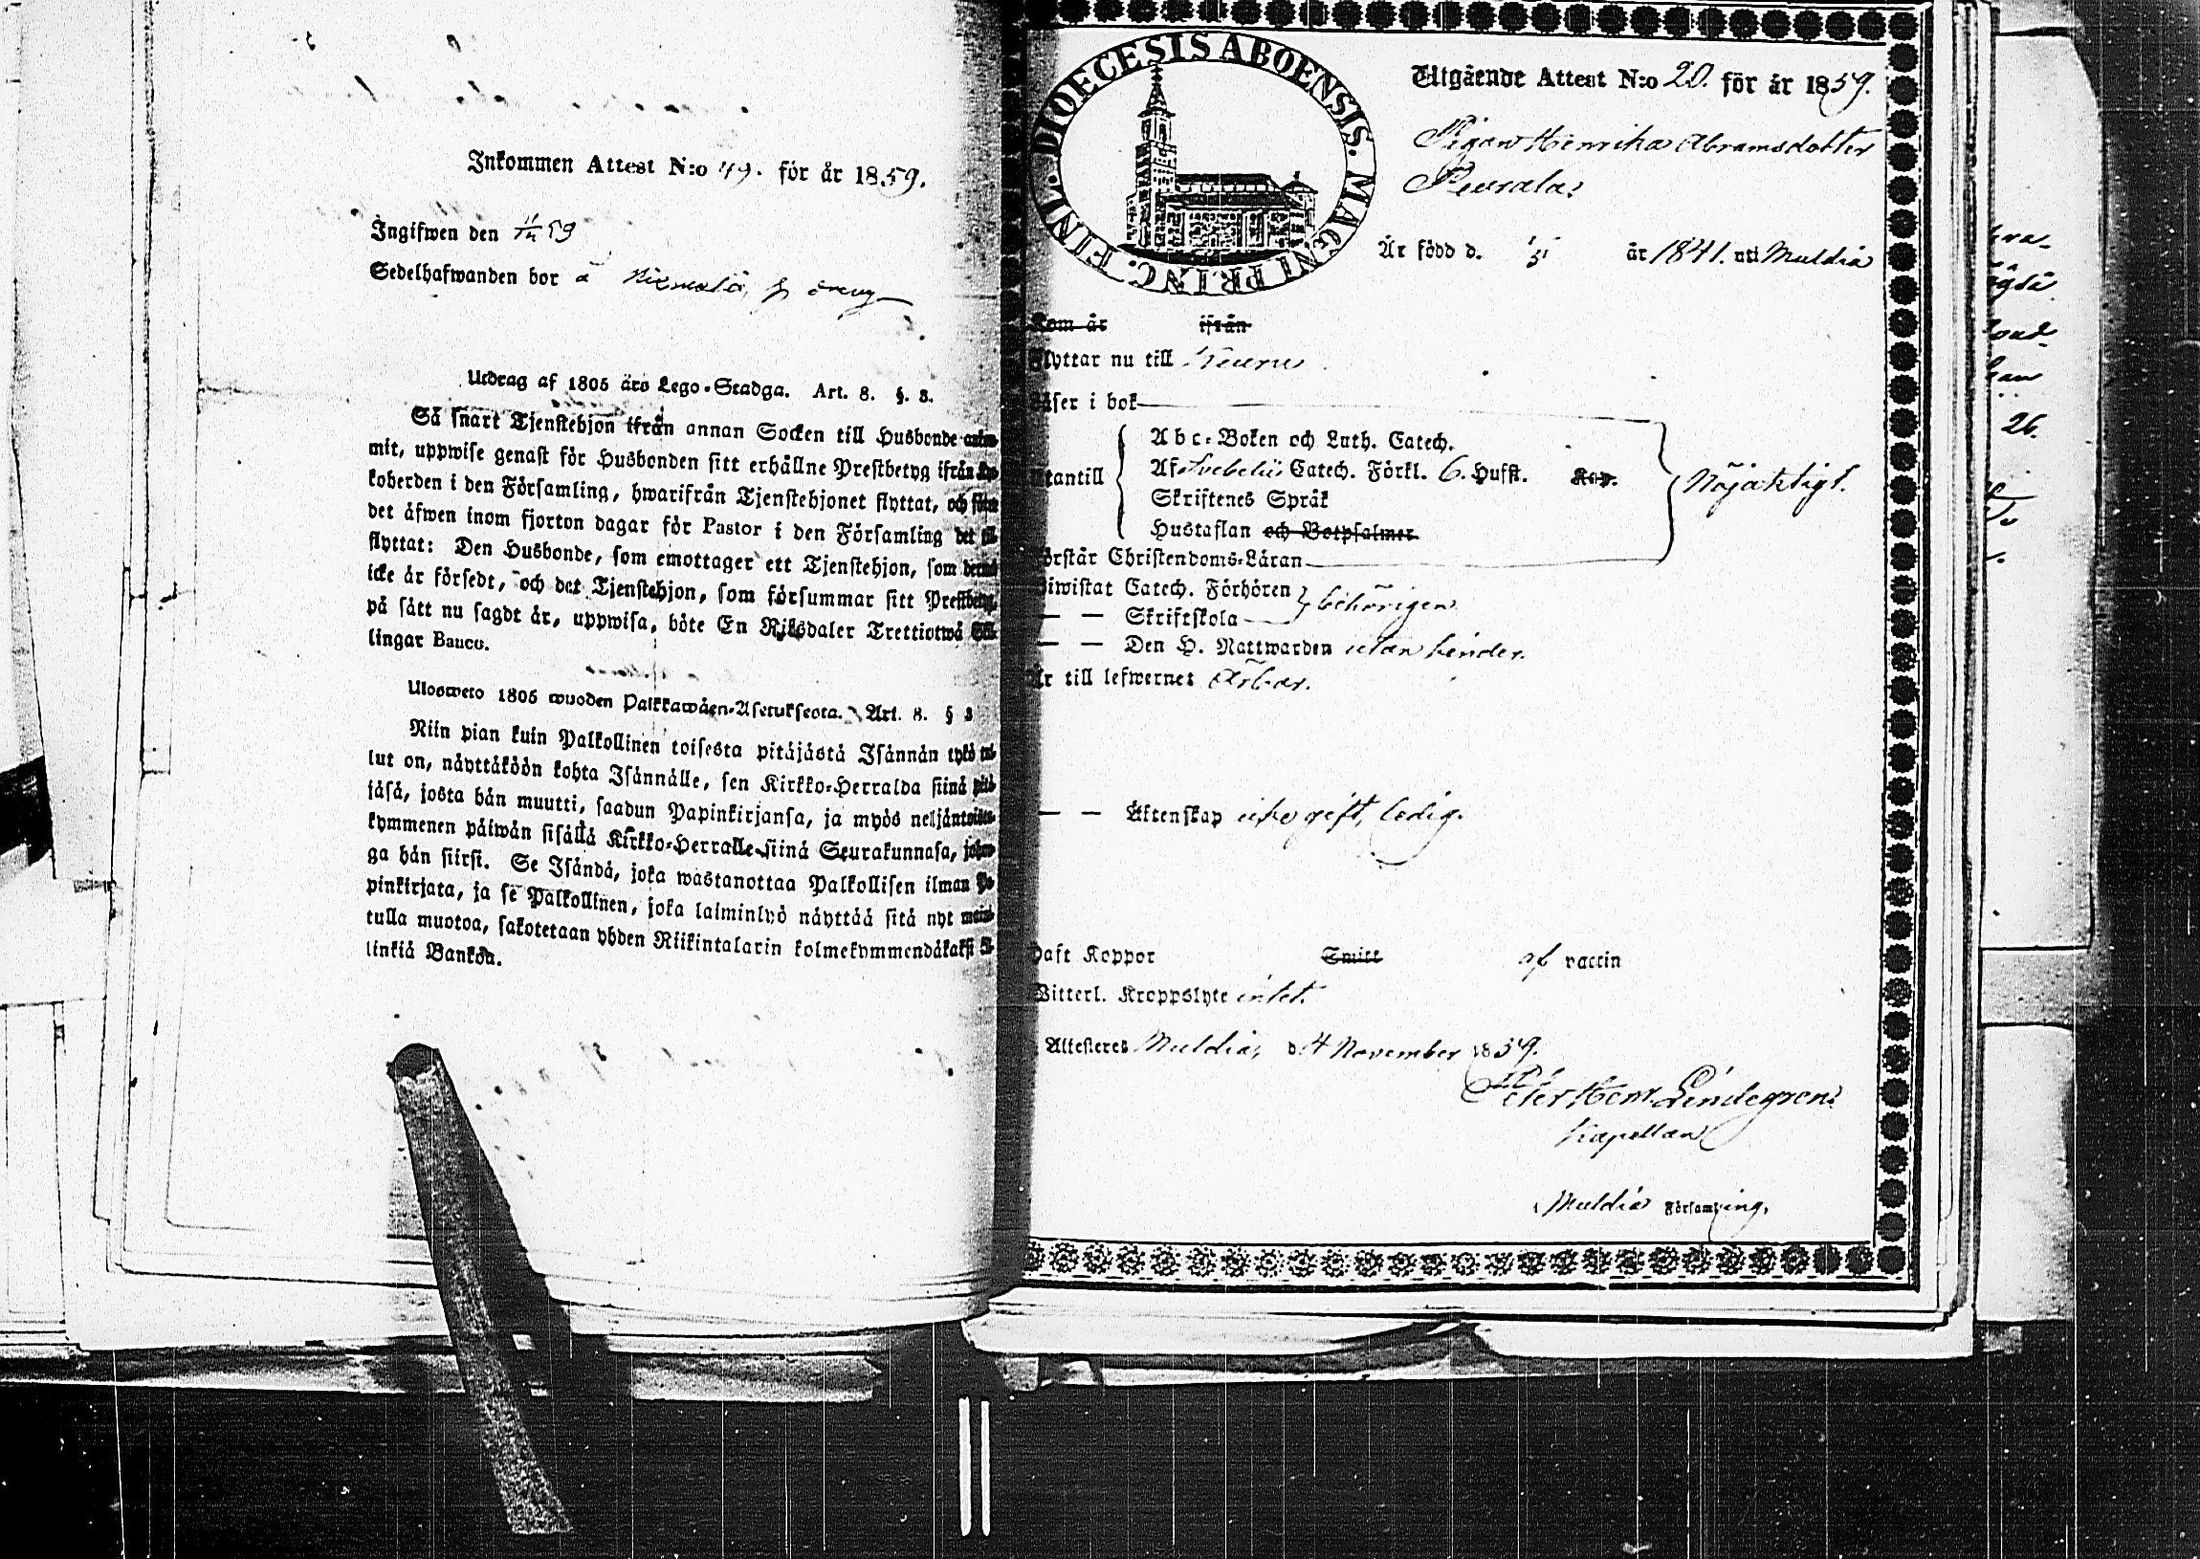 Inkommen Attest N:o 49. för år 1859.
Ingifwen den 11/11 59
Sedelhafwanden bor å
Utdrag af 1805 års Lego-Stadga. Art. 8. §. 3.
Så snart Tjenstehjon ifrån annan Socken till Husbonde
mit, uppwise genast för Husbonden sitt erhållne Prestbetyg ifrån
koherden i den Församling, hwarifrån Tjenstehjonet flyttat, och
det äfwen inom fjorton dagar för Pastor i den Församling det
flyttat: Den Husbonde, som emottager ett Tjenstehjon, som
icke är försedt, och det Tjenstehjon, som försummar sitt
på sätt nu sagdt är, uppwisa, böte En Riksdaler Trettiotwå
lingar Banco.
Ulosweto 1805 wuoden Palkkawäen-Asetuksesta. Art. 8. § 3
Niin pian kuin Palkollinen toisesta pitäjästä Isännän tykö
lut on, näyttäköön kohta Isännälle, sen Kirkko-Herralda siinä
jäsä, josta hän muutti, saadun Papinkirjansa, ja myös
kymmenen päiwän sisällä Kirkko-Herralle siinä Seurakunnasa,
ga hän siirsi. Se Isändä, joka wastanottaa Palkollisen ilman
pinkirjata, ja se Palkollinen, joka laiminlyö näyttää sitä nyt
tulla muotoa, sakotetaan yhden Riikintalarin kolmekymmendäkaksi
linkiä Bankoa.
FINL. DIOECESIS ABOENSIS. MAGNI PRINC.
Utgående Attest N:o 20. för år 1859.
Pigan Henrika Abramsdotter
Peurala,
Är född d. 1/5 år 1841. uti Muldia
Kom år ifrån
Flyttar nu till Keuru
Läser i bok
Utantill
Abc-Boken och Luth. Catech.
Af Svebelii Catech. Förkl. 6. Hufst. Kap.
Skriftenes Språk
Hustaflan och Botpsalmer
Nöjaktigt.
Förstår Christendoms-Läran
Biwistat Catech. Förhören
— — Skriftskola
behörigen
— — Den H. Nattwarden utan hinder.
Är till lefwernet Ärbar.
— — Äktenskap icke gift, ledig.
Haft Koppor Smitt af vaccin
Witterl. Kroppslyte intet.
Attesteres Muldia, d. 4 November 1859.
Peter Hem. Lindegren
Kapellan
i Muldia Församling.
26.